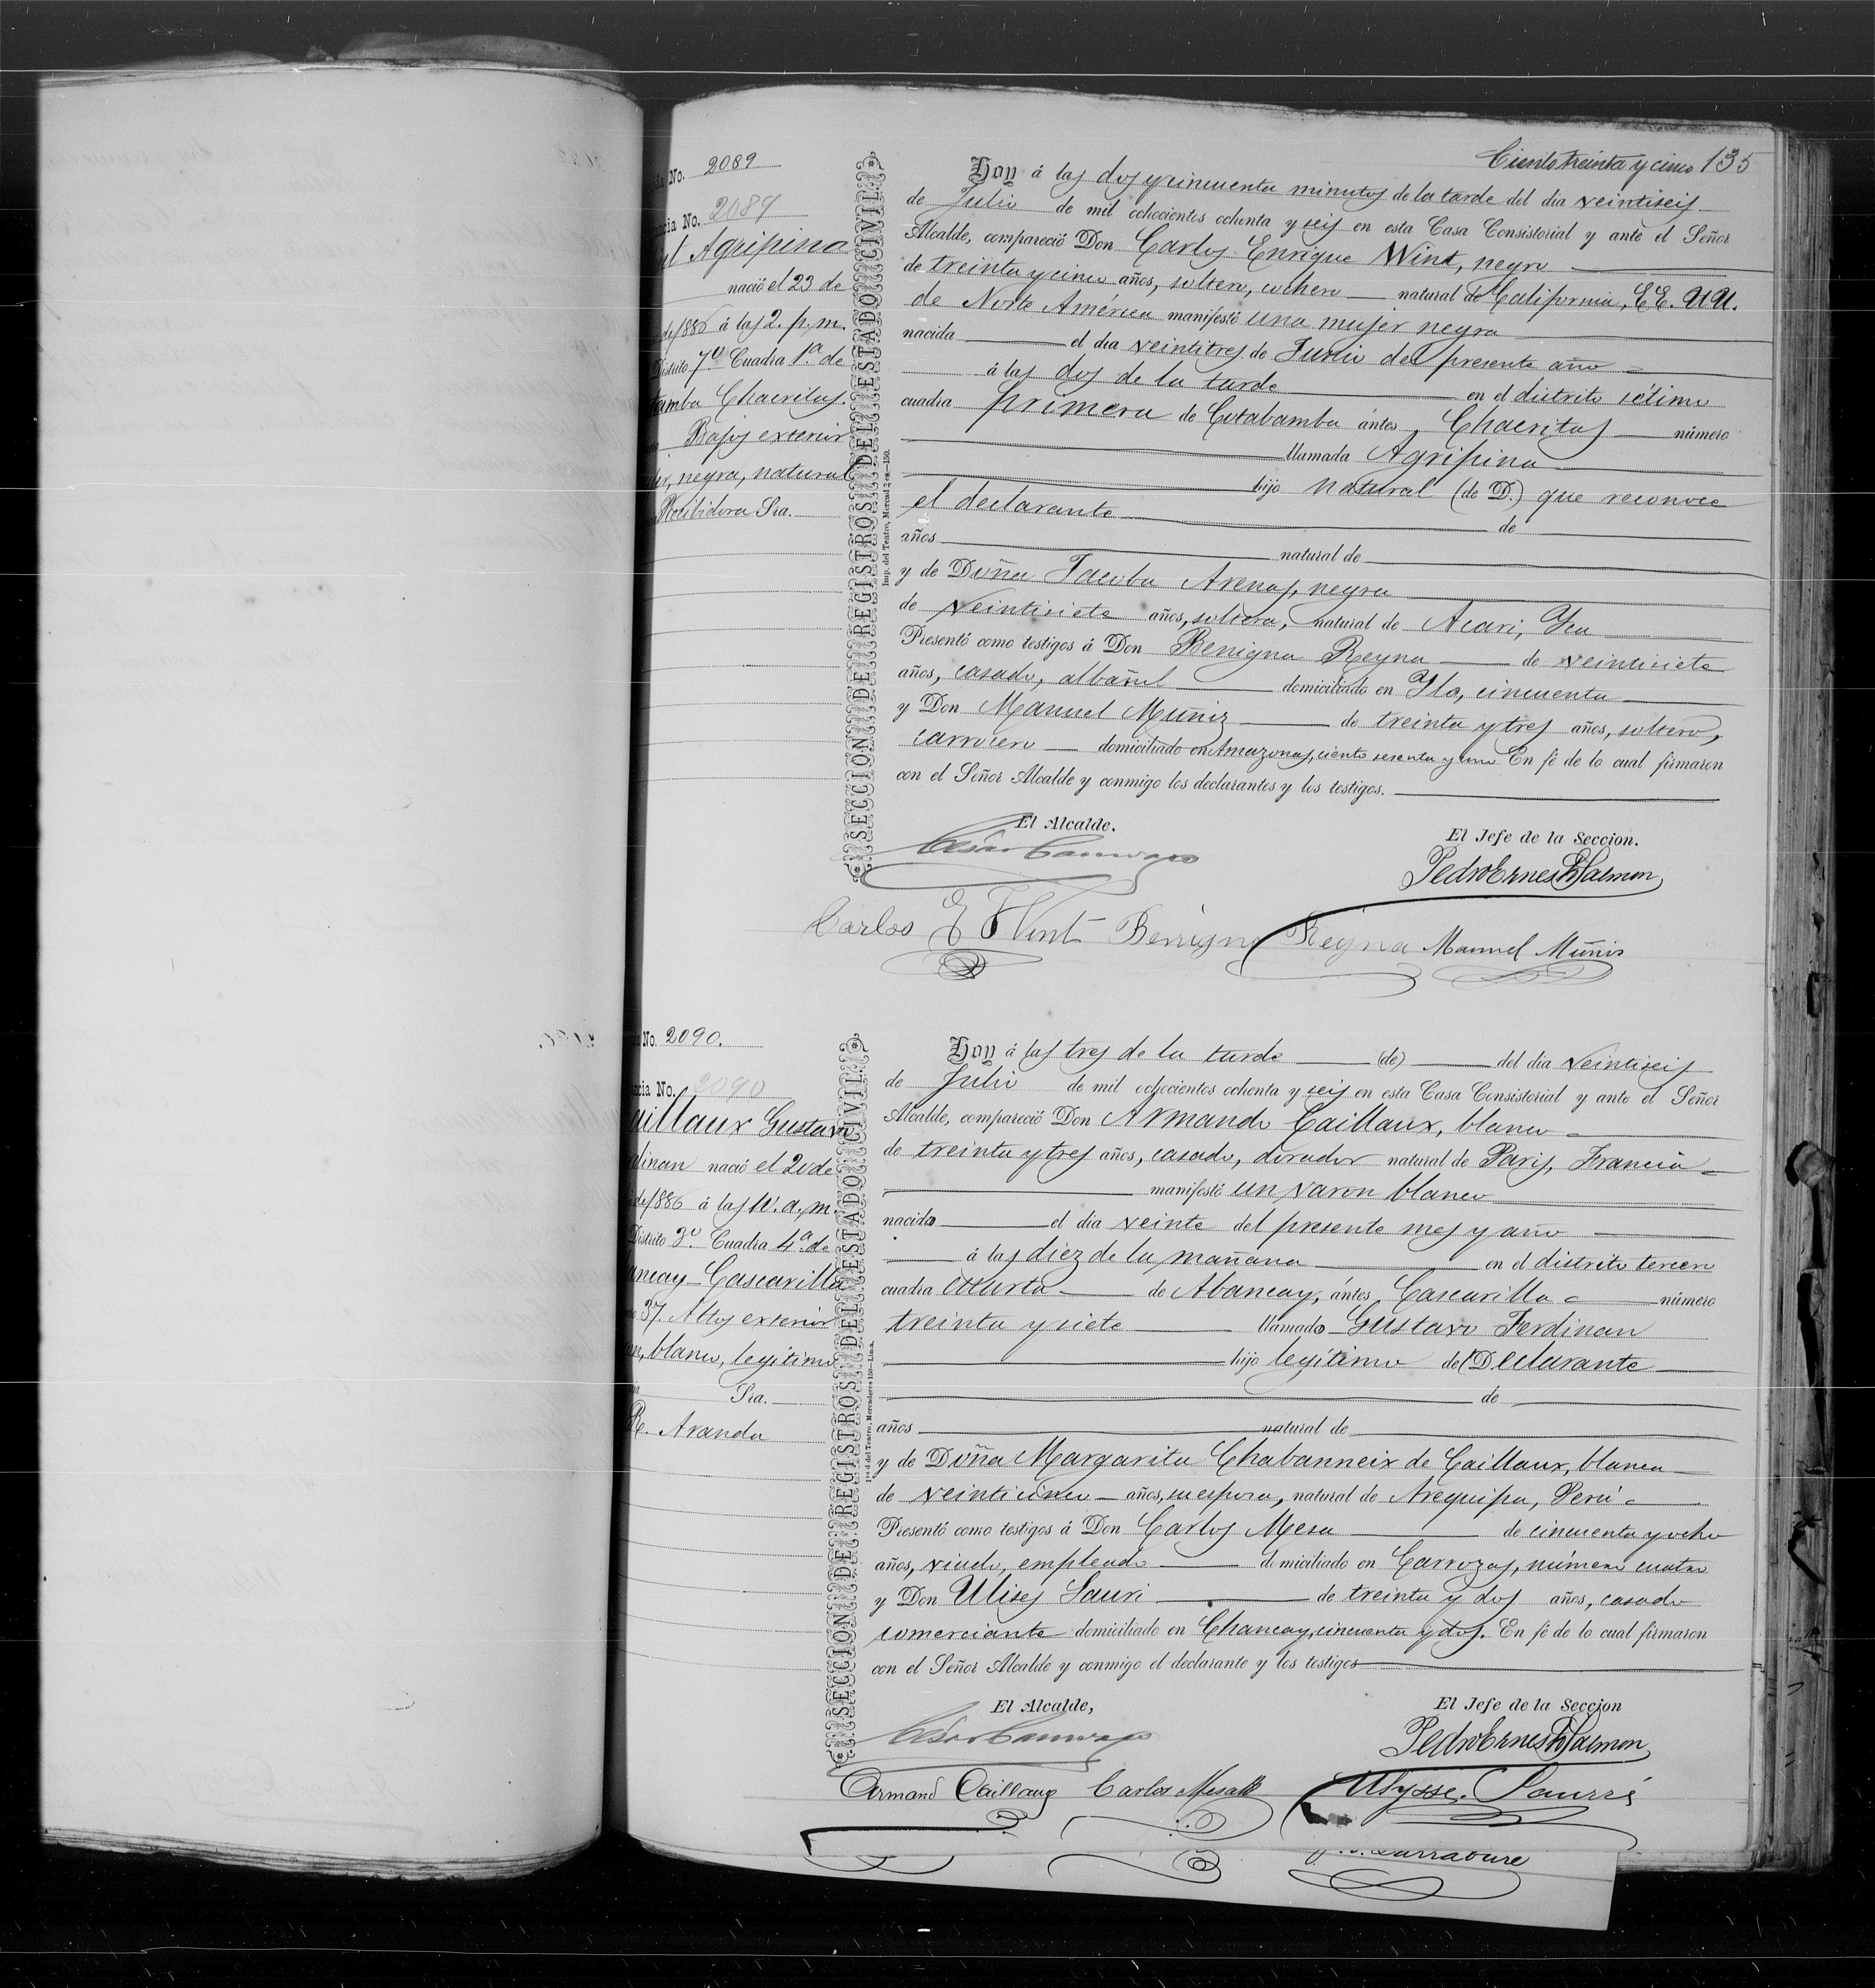 Ciento treinta y cinco 135
No. 2089
ncia No. 2089
Agripina
nació el 23 de
de 1886 á las 2. p. m.
Distrito 7º Cuadra 1ª de
bamba Chacritas.
Bajos exterior
negra, natural
Recibidora Sra.
SECCION DE REGISTROS DEL ESTADO CIVIL
Imp. del Teatro, Mercaderes—150.
Hoy á las dos y cincuenta minutos de la tarde del dia veintiseis
de Julio de mil ochocientos ochenta y seis en esta Casa Consistorial y ante el Señor
Alcalde, compareció Don Carlos Enrique Wint, negro
de treinta y cinco años, soltero, cochero natural de California, EE. UU.
de Norte América manifestó una mujer negra
nacida el dia veintitres de Junio del presente año
á las dos de la tarde en el distrito sétimo
cuadra primera de Cotabamba ántes, Chacritas número
llamada Agripina
hija natural (de D.) que reconoce
el declarante de
años natural de
y de Doña Jacoba Arenas, negra
de veintisiete años, soltera, natural de Acari, Yca
Presentó como testigos á Don Benigna Reyna de veintisiete
años, casado, albañil domiciliado en Ylo, cincuenta
y Don Manuel Muñiz de treinta y tres años, soltero,
carrocero domiciliado en Amazonas, ciento sesenta y uno En fé de lo cual firmaron
con el Señor Alcalde y conmigo los declarantes y los testigos.
El Alcalde.
El Jefe de la Seccion.
Pedro Ernesto Salmon
Carlos E Wint Benigno Reyna Manuel Muñis
No. 2090.
ncia No. 2090
aillaux Gustavo
dinan nació el 20 de
de 1886 á las 10. a. m.
Distrito 3º Cuadra 4ª de
ancay-Cascarilla
37. Altos exterior
blanco, legítimo
Sra.
R. Aranda
SECCION DE REGISTROS DEL ESTADO CIVIL
del Teatro, Mercaderes 150—Lima.
Hoy á las tres de la tarde (de) del dia veintiseis
de Julio de mil ochocientos ochenta y seis en esta Casa Consistorial y ante el Señor
Alcalde, compareció Don Armando Caillaux, blanco
de treinta y tres años, casado, dorador natural de Paris, Francia
manifestó un varon blanco
nacido el dia veinte del presente mes y año
á las diez de la mañana en el distrito tercero
cuadra cuarta de Abancay, ántes, Cascarilla número
treinta y siete llamado Gustavo Ferdinan
hijo legítimo del Declarante
de
años natural de
y de Doña Margarita Chabanneix de Caillaux, blanca
de veinticinco años, su esposa, natural de Arequipa, Perú
Presentó como testigos á Don Carlos Mesa de cincuenta y ocho
años, viudo, empleado domiciliado en Carrozas, número cuatro
y Don Ulises Sauri de treinta y dos años, casado
comerciante domiciliado en Chancay, cincuenta y dos. En fé de lo cual firmaron
con el Señor Alcalde y conmigo el declarante y los testigos
El Alcalde,
El Jefe de la Seccion
Pedro Ernesto Salmon
Armand Caillaux Carlos Mesa Ulysse. Saurré
Larrabure